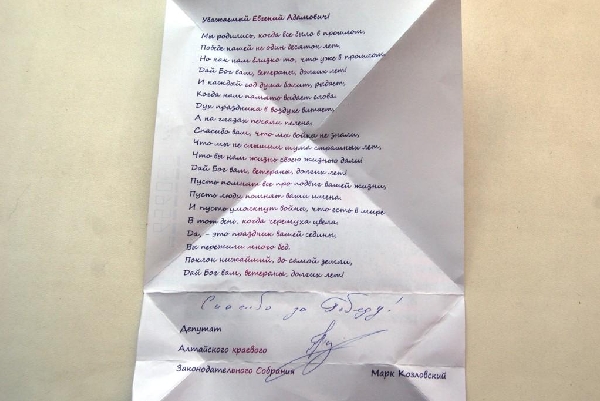 Уважаемый Евгений Адамович!
Мы родились, когда все было в прошлом,
Победе нашей не один десяток лет,
Но как нам близко то, что уже в прошлом.
Дай Бог вам, ветераны, долгих лет!
И каждый год душа болит, рыдает,
Когда нам память выдает слова.
Дух праздника в воздухе витает,
А на глазах печали пелена.
Спасибо вам, что мы войны не знаем,
Что мы не слышим шума страшных лет,
Что вы нам жизнь своею жизнью дали!
Дай Бог вам, ветераны, долгих лет!
Пусть помнят все про подвиг вашей жизни,
Пусть люди помнят ваши имена.
И пусть умолкнут войны, что есть в мире
В тот день, когда черемуха цвела.
Да, - это праздник вашей седины,
Вы пережили много бед.
Поклон нижайший, до самой земли,
Дай Бог вам, ветераны, долгих лет!
Спасибо за Победу!
Депутат
Алтайского краевого
Законодательного Собрания Марк Козловский